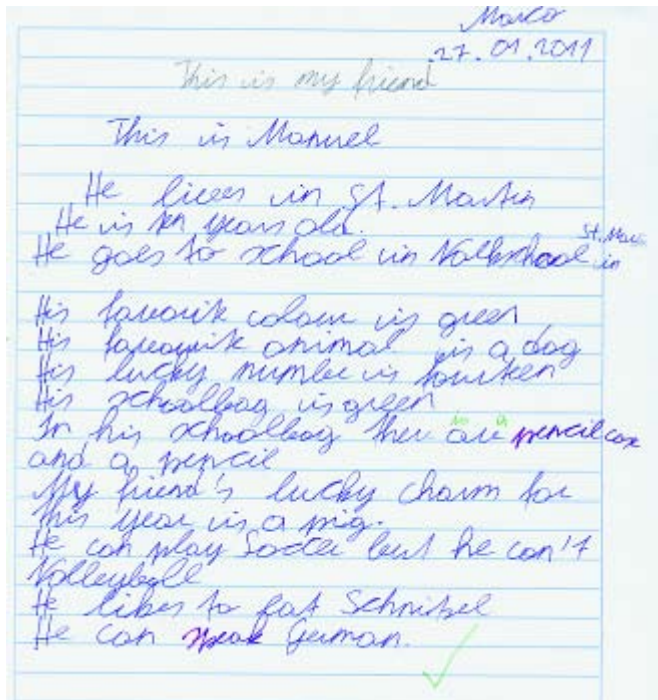 Marco
27.01.2011
This is my friend
This is Manuel
He lives in St. Martin
He is ten years old.
St. Martin
He goes to school in Volkshool in
His favourite colour is green
His favourite animal is a dog
His lucky number is fourteen
His schoolbag is green
is a
In his schoolbag ther are pencilcase
and a pencil
My friend's lucky charm for
this year is a pig.
He can play Socter but he can't
Volleyball
He likes to eat Schnitzel
He can speak German.